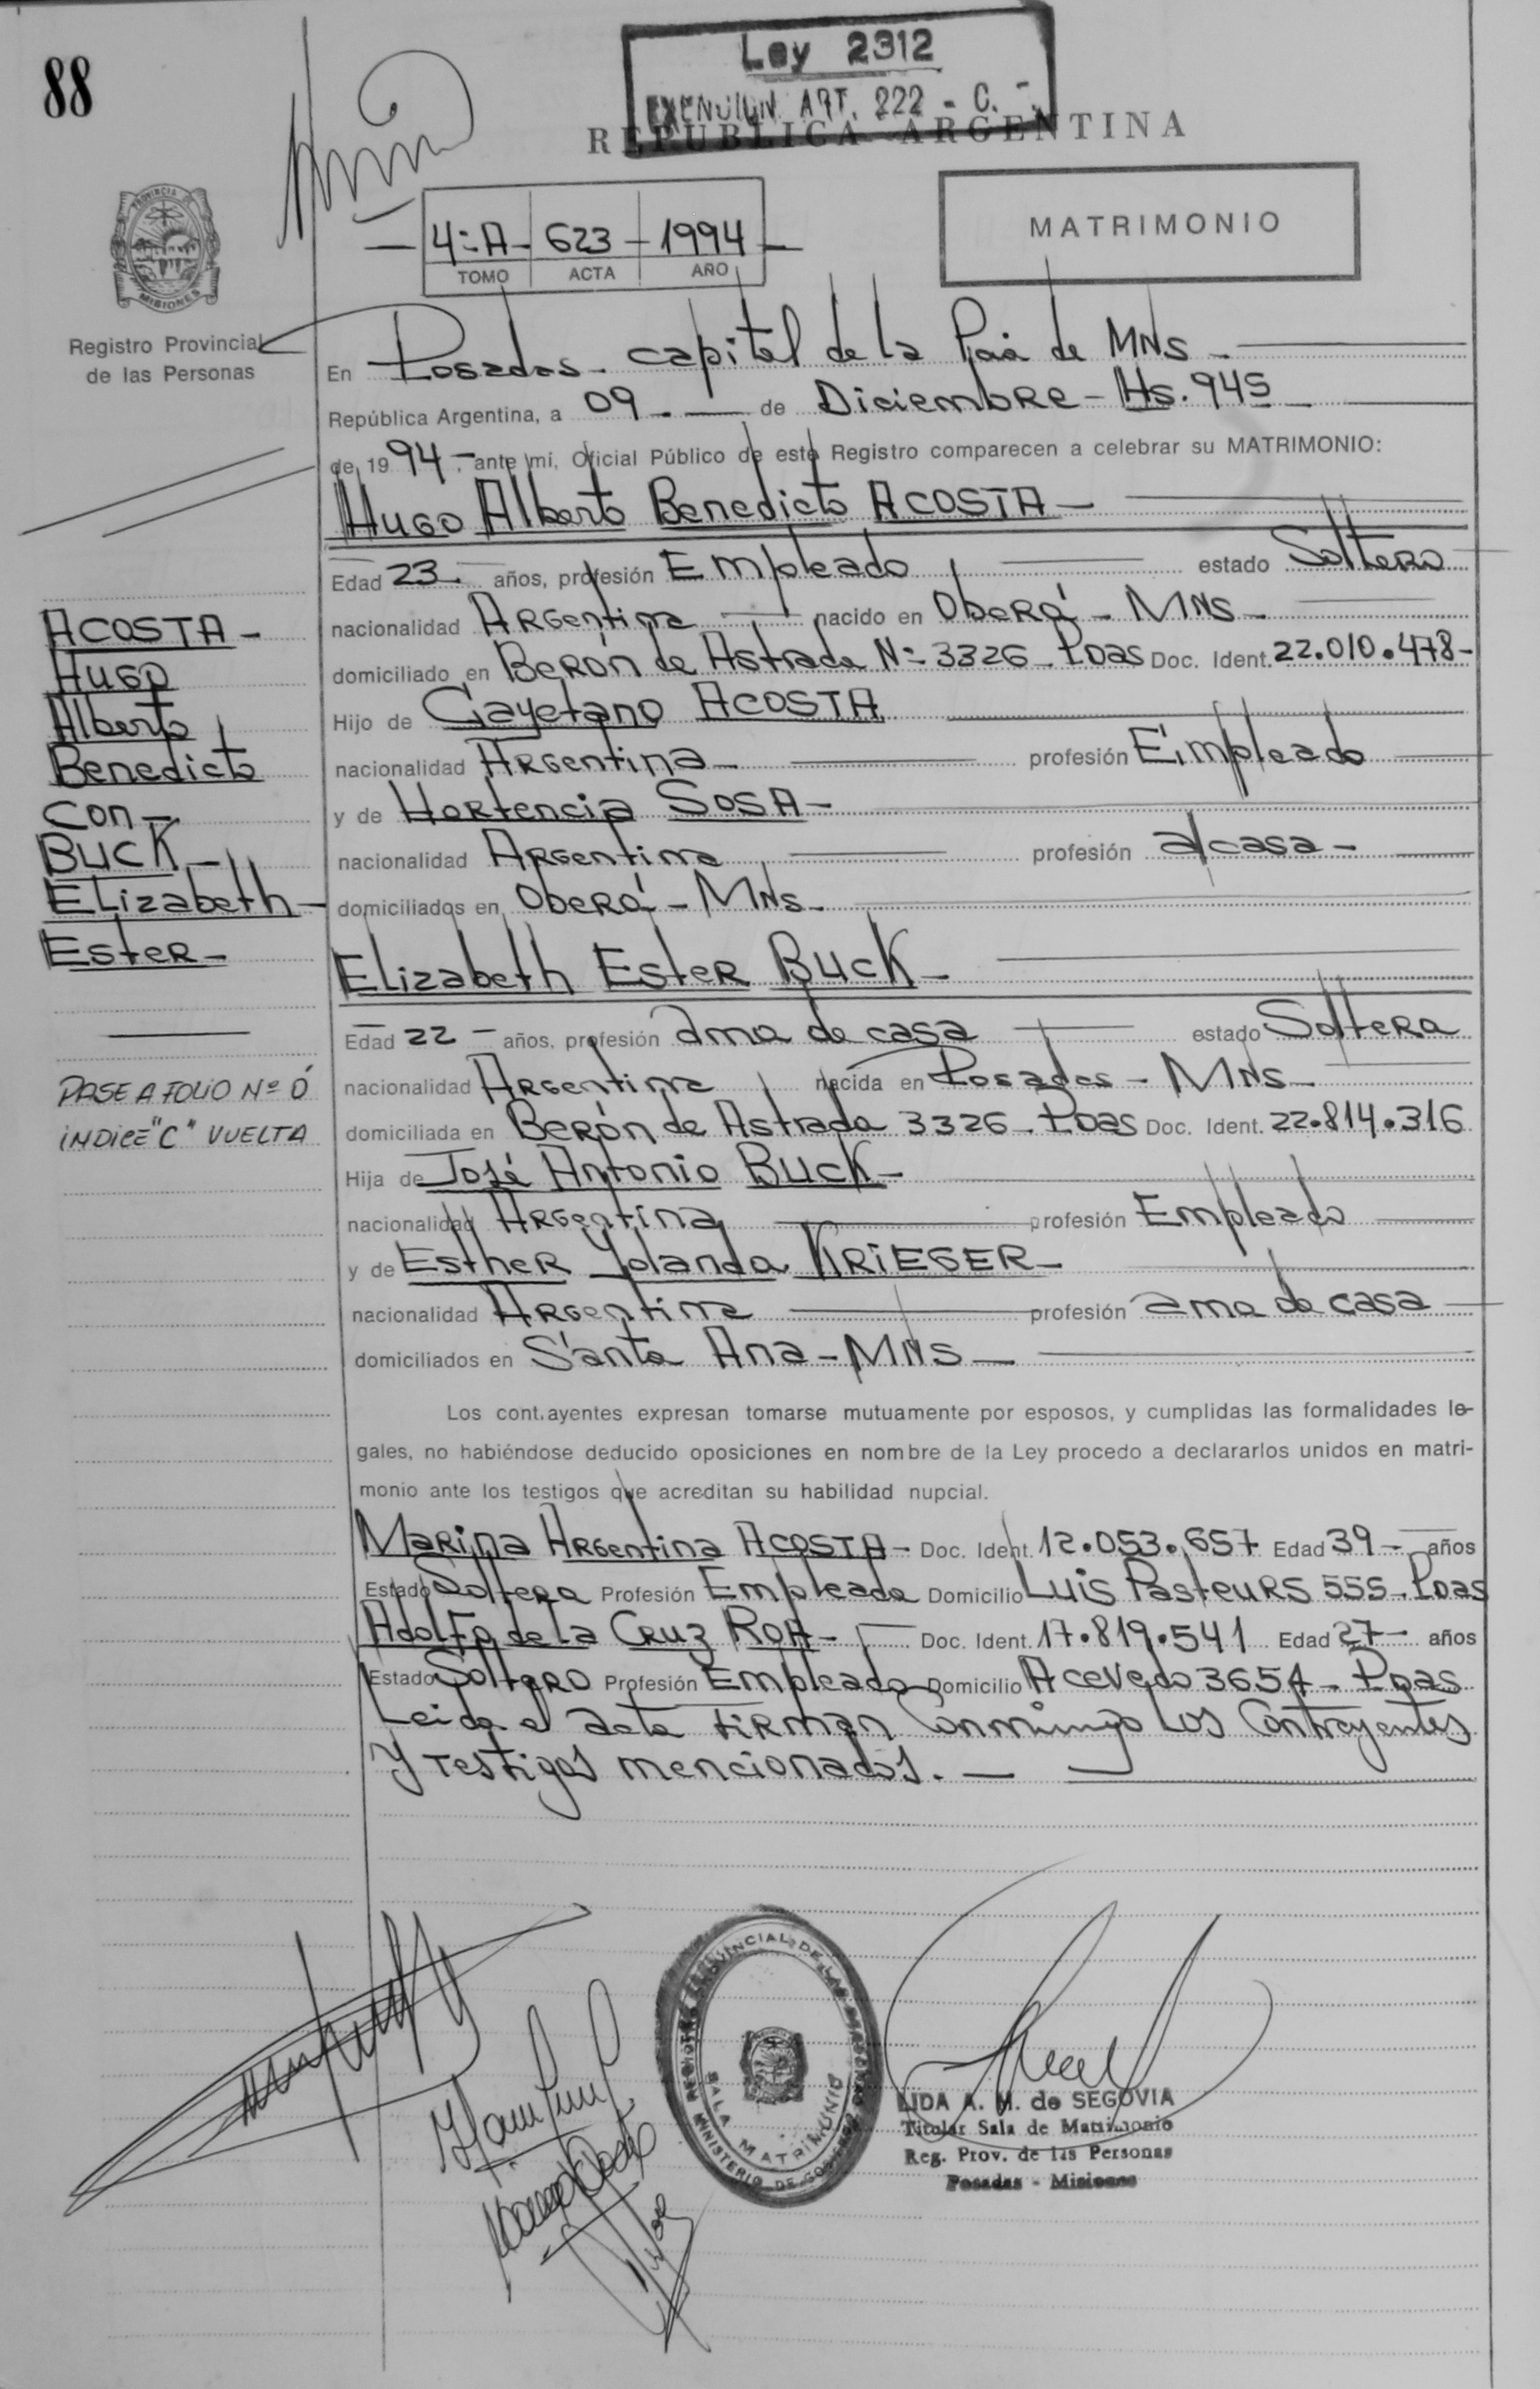 88
Ley 2312
EXENCION ART. 222 - C. -
REPUBLICA ARGENTINA
PROVINCIA
MISIONES
Registro Provincial
de las Personas
4-A- 623 - 1994 -
TOMO ACTA AÑO
MATRIMONIO
En Posadas - capital de la Pcia de MNS -
República Argentina, a 09 - de Diciembre - Hs. 945
de 19 94 - , ante mí, Oficial Público de este Registro comparecen a celebrar su MATRIMONIO:
Hugo Alberto Benedicto ACOSTA -
Edad 23 - años, profesión Empleado estado Soltero
nacionalidad Argentina nacido en Oberá - MNS -
domiciliado en Berón de Astrada Nº 3326 - Pdas Doc. Ident. 22.010.478 -
Hijo de Cayetano ACOSTA
nacionalidad Argentina - profesión Empleado
y de Hortencia SOSA -
nacionalidad Argentina profesión a/casa -
domiciliados en Oberá - MNS -
Elizabeth Ester Buck -
Edad 22 - años, profesión ama de casa estado Soltera
nacionalidad Argentina nacida en Posadas - MNS -
domiciliada en Berón de Astrada 3326 - Pdas Doc. Ident. 22.814.316
Hija de José Antonio Buck -
nacionalidad Argentina profesión Empleado
y de Esther Yolanda KRIEGER -
nacionalidad Argentina profesión ama de casa
domiciliados en Santa Ana - MNS -
Los contrayentes expresan tomarse mutuamente por esposos, y cumplidas las formalidades le-
gales, no habiéndose deducido oposiciones en nombre de la Ley procedo a declararlos unidos en matri-
monio ante los testigos que acreditan su habilidad nupcial.
Marina Argentina ACOSTA - Doc. Ident. 12.053.657 Edad 39 - años
Estado Soltera Profesión Empleada Domicilio Luis Pasteurs 555 - Pdas
Adolfo de la Cruz ROA - Doc. Ident. 17.819.541 Edad 27 - años
Estado Soltero Profesión Empleado Domicilio Acevedo 3654 - Pdas
Leida el acta firman conmimgo los Contrayentes
y testigos mencionados. -
ACOSTA -
Hugo
Alberto
Benedicto
con -
BUCK -
Elizabeth -
Ester -
PASE A FOLIO Nº 0
INDICE "C" VUELTA
REGISTRO PROVINCIAL DE LAS PERSONAS
SALA MATRIMONIO
MINISTERIO DE GOBIERNO
LIDA A. M. de SEGOVIA
Titular Sala de Matrimonio
Reg. Prov. de las Personas
Posadas - Misiones